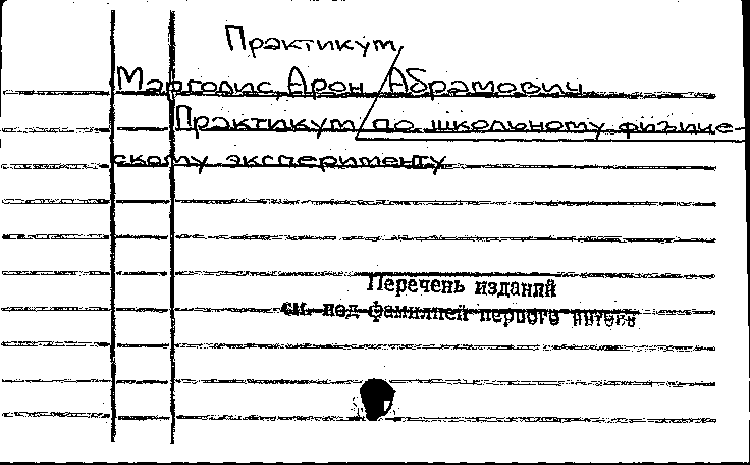 Практикум
Марголис, Арон Абрамович
Практикум по школьному физиче-
скому эксперименту
Перечень изданий
см. под фамилией первого автора